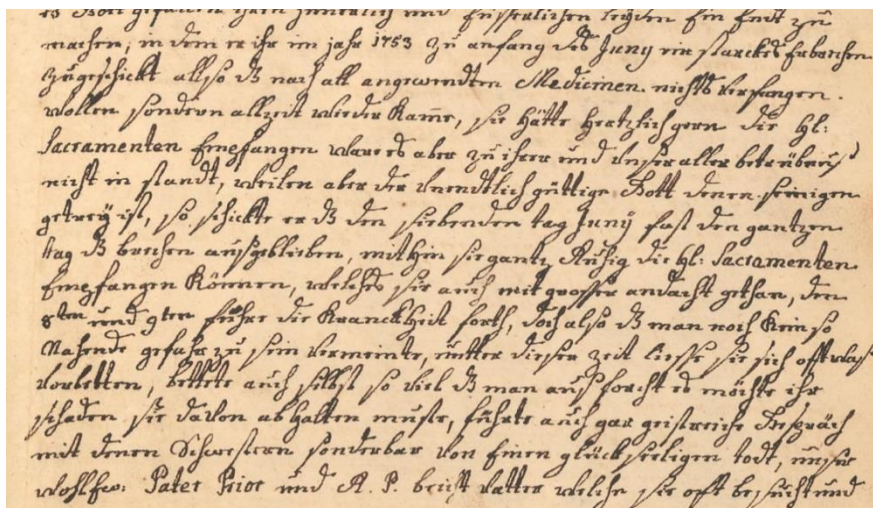 es Gott gefallen ihren innerlich und eusserlichen leyden Ein Endt zu
machen, in dem er ihr im jahr 1753 zu anfang des Juny ein starckes Erbrechen
zugeschickt allso dz nach all angewendten Medicinen nichts verfangen
wollen sondern allzeit wieder kame, sie hätte hertzlich gern die hl:
Sacramenten Empfangen ware es aber zu ihrer und unser aller betrübnus
nicht in standt, weilen aber der unendtlich güttige Gott denen seinigen
getrey ist, so schickte er dz den siebenden tag Juny fast den gantzen
tag dz brechen ausgeblieben, mithin sie gantz Ruhig die hl: Sacramenten
Empfangen können, welches sie auch mit grosser andacht gethan, den
8ten und 9ten führe die Kranckheit forth, doch also dz man noch kein so
Nahende gefahr zu sein vermeinte, unter dieser zeit liesse sie sich offt was
vorbetten, bettete auch selbst so viel dz man aus forcht es möchte ihr
schaden sie davon abhalten muste, führte auch gar geistreiche Gespräch
mit denen Schwestern sonderbar von Einen glückseeligen todt, unser
wohlEw: Pater Prior und A. P. beicht vatter welche sie offt besucht und